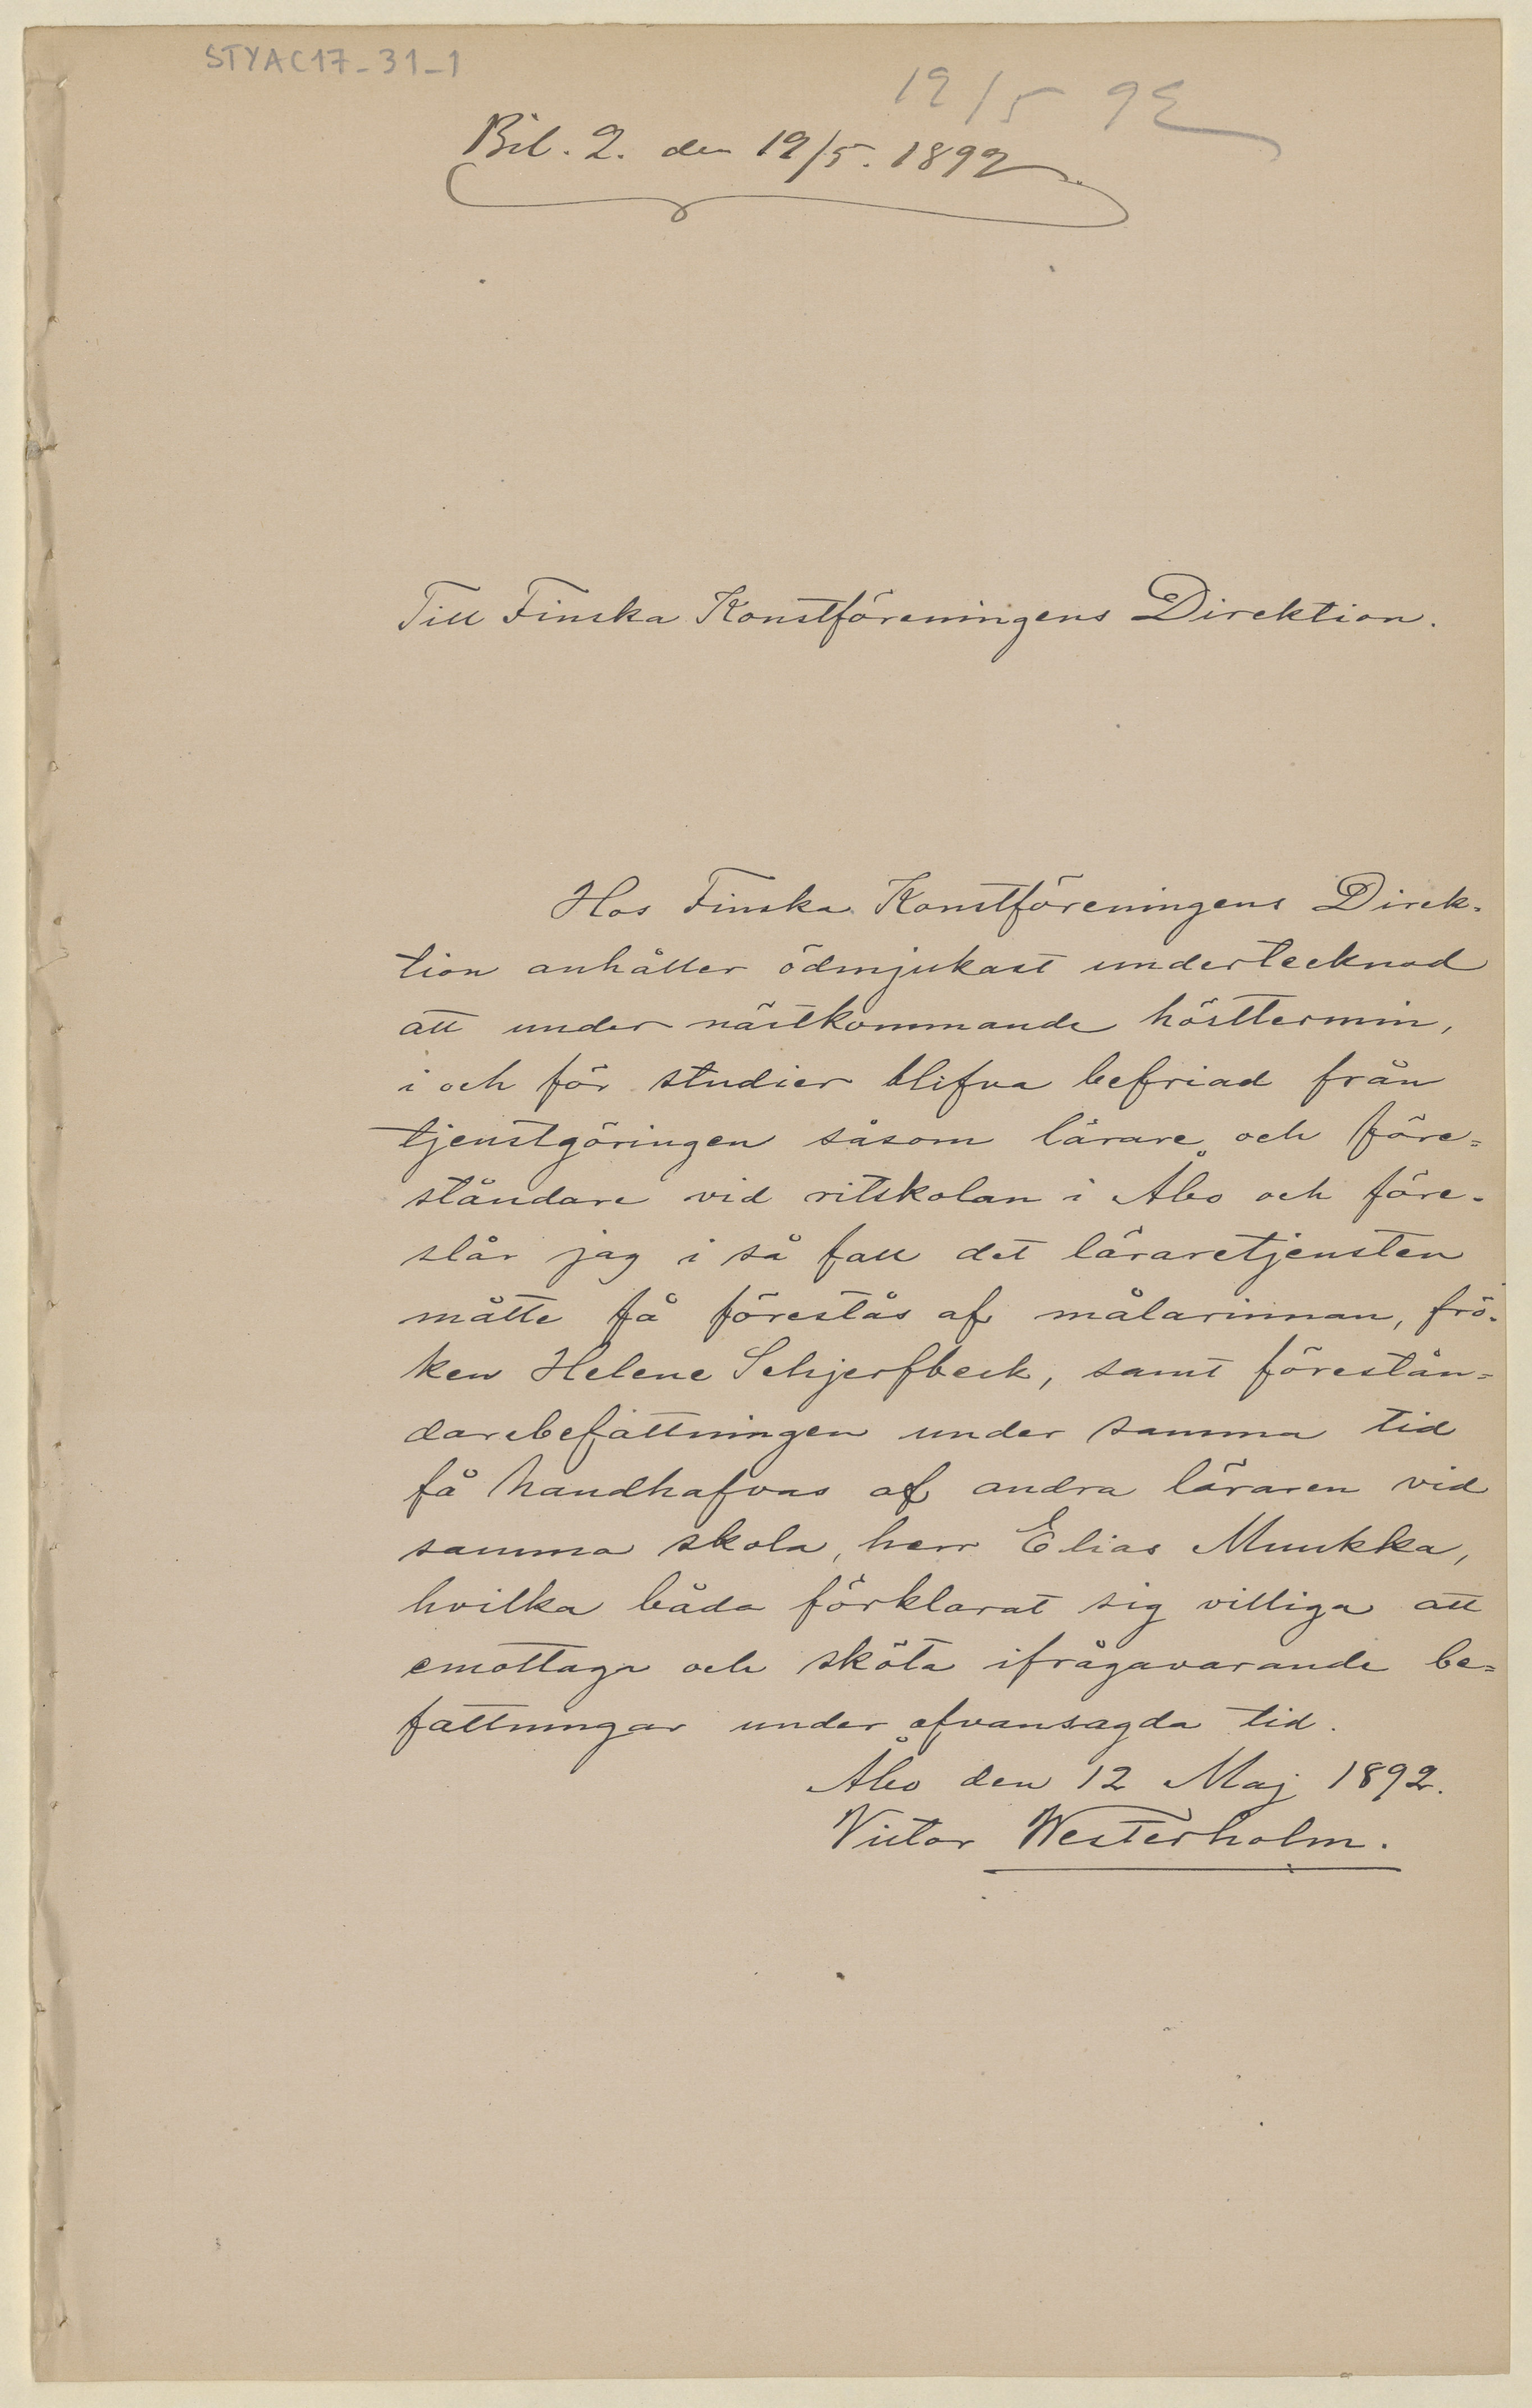 STYAC17-31-1
19/5 92
Bil. 2. den 19/5. 1892.
Till Finska Konstföreningens Direktion.
Hos Finska Konstföreningens Direk-
tion anhåller ödmjukast undertecknad
att under nästkommande hösttermin,
i och för studier blifva befriad från
tjenstgöringen såsom lärare och före=
ståndare vid ritskolan i Åbo och före-
slår jag i så fall det läraretjensten
måtte få förestås af målarinnan, frö-
ken Helene Schjerfbeck, samt förestån=
darebefattningen under samma tid
få handhafvas af andra läraren vid
samma skola, herr Elias Muukka,
hvilka båda förklarat sig villiga att
emottaga och sköta ifrågavarande be=
fattningar under ofvansagda tid.
Åbo den 12 Maj 1892.
Victor Westerholm.